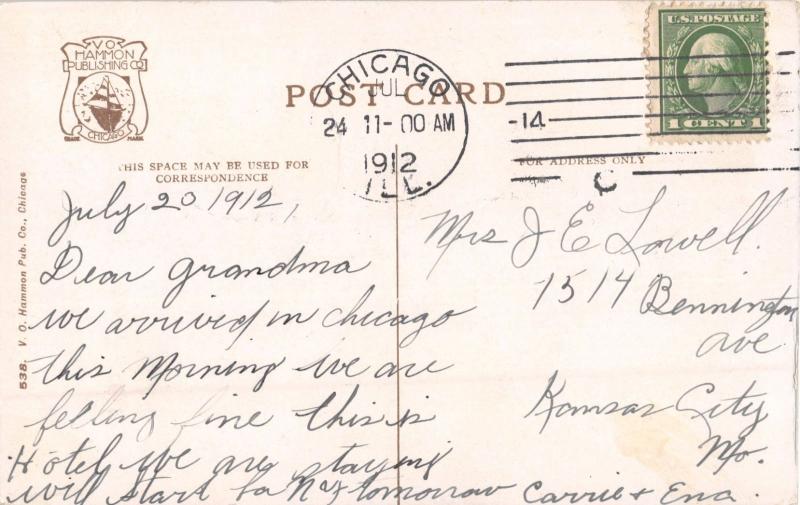 V O
HAMMON
PUBLISHING CO
CHICAGO
TRADE MARK
POST CARD
CHICAGO
JUL
24 11-00 AM
1912
ILL.
-14
C
U.S. POSTAGE
1 CENT 1
THIS SPACE MAY BE USED FOR
CORRESPONDENCE
FOR ADDRESS ONLY
538. V. O. Hammon Pub. Co., Chicago
July 20 1912,
Dear grandma
we arrived in chicago
this Morning we are
felling fine this is
Hotel we are staying
will start for tomorrow Carrie + Ena.
Mrs J E Lowell.
1514 Bennington
ave
Kansas City
Mo.